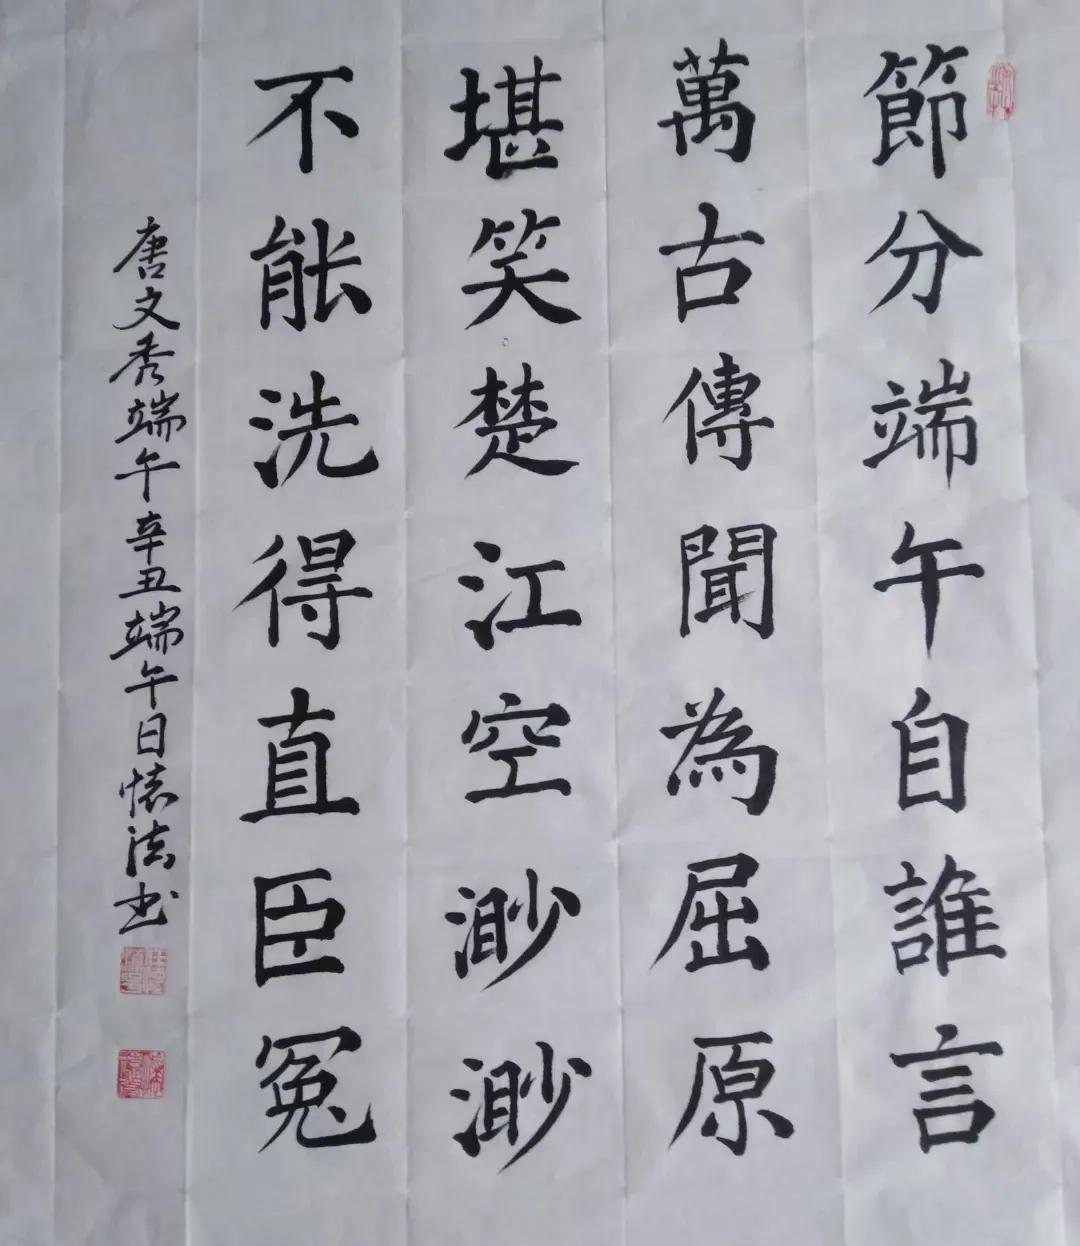 節分端午自誰言
萬古傳聞為屈原
堪笑楚江空渺渺
不能洗得直臣冤
唐文秀端午辛丑端午日懷法书